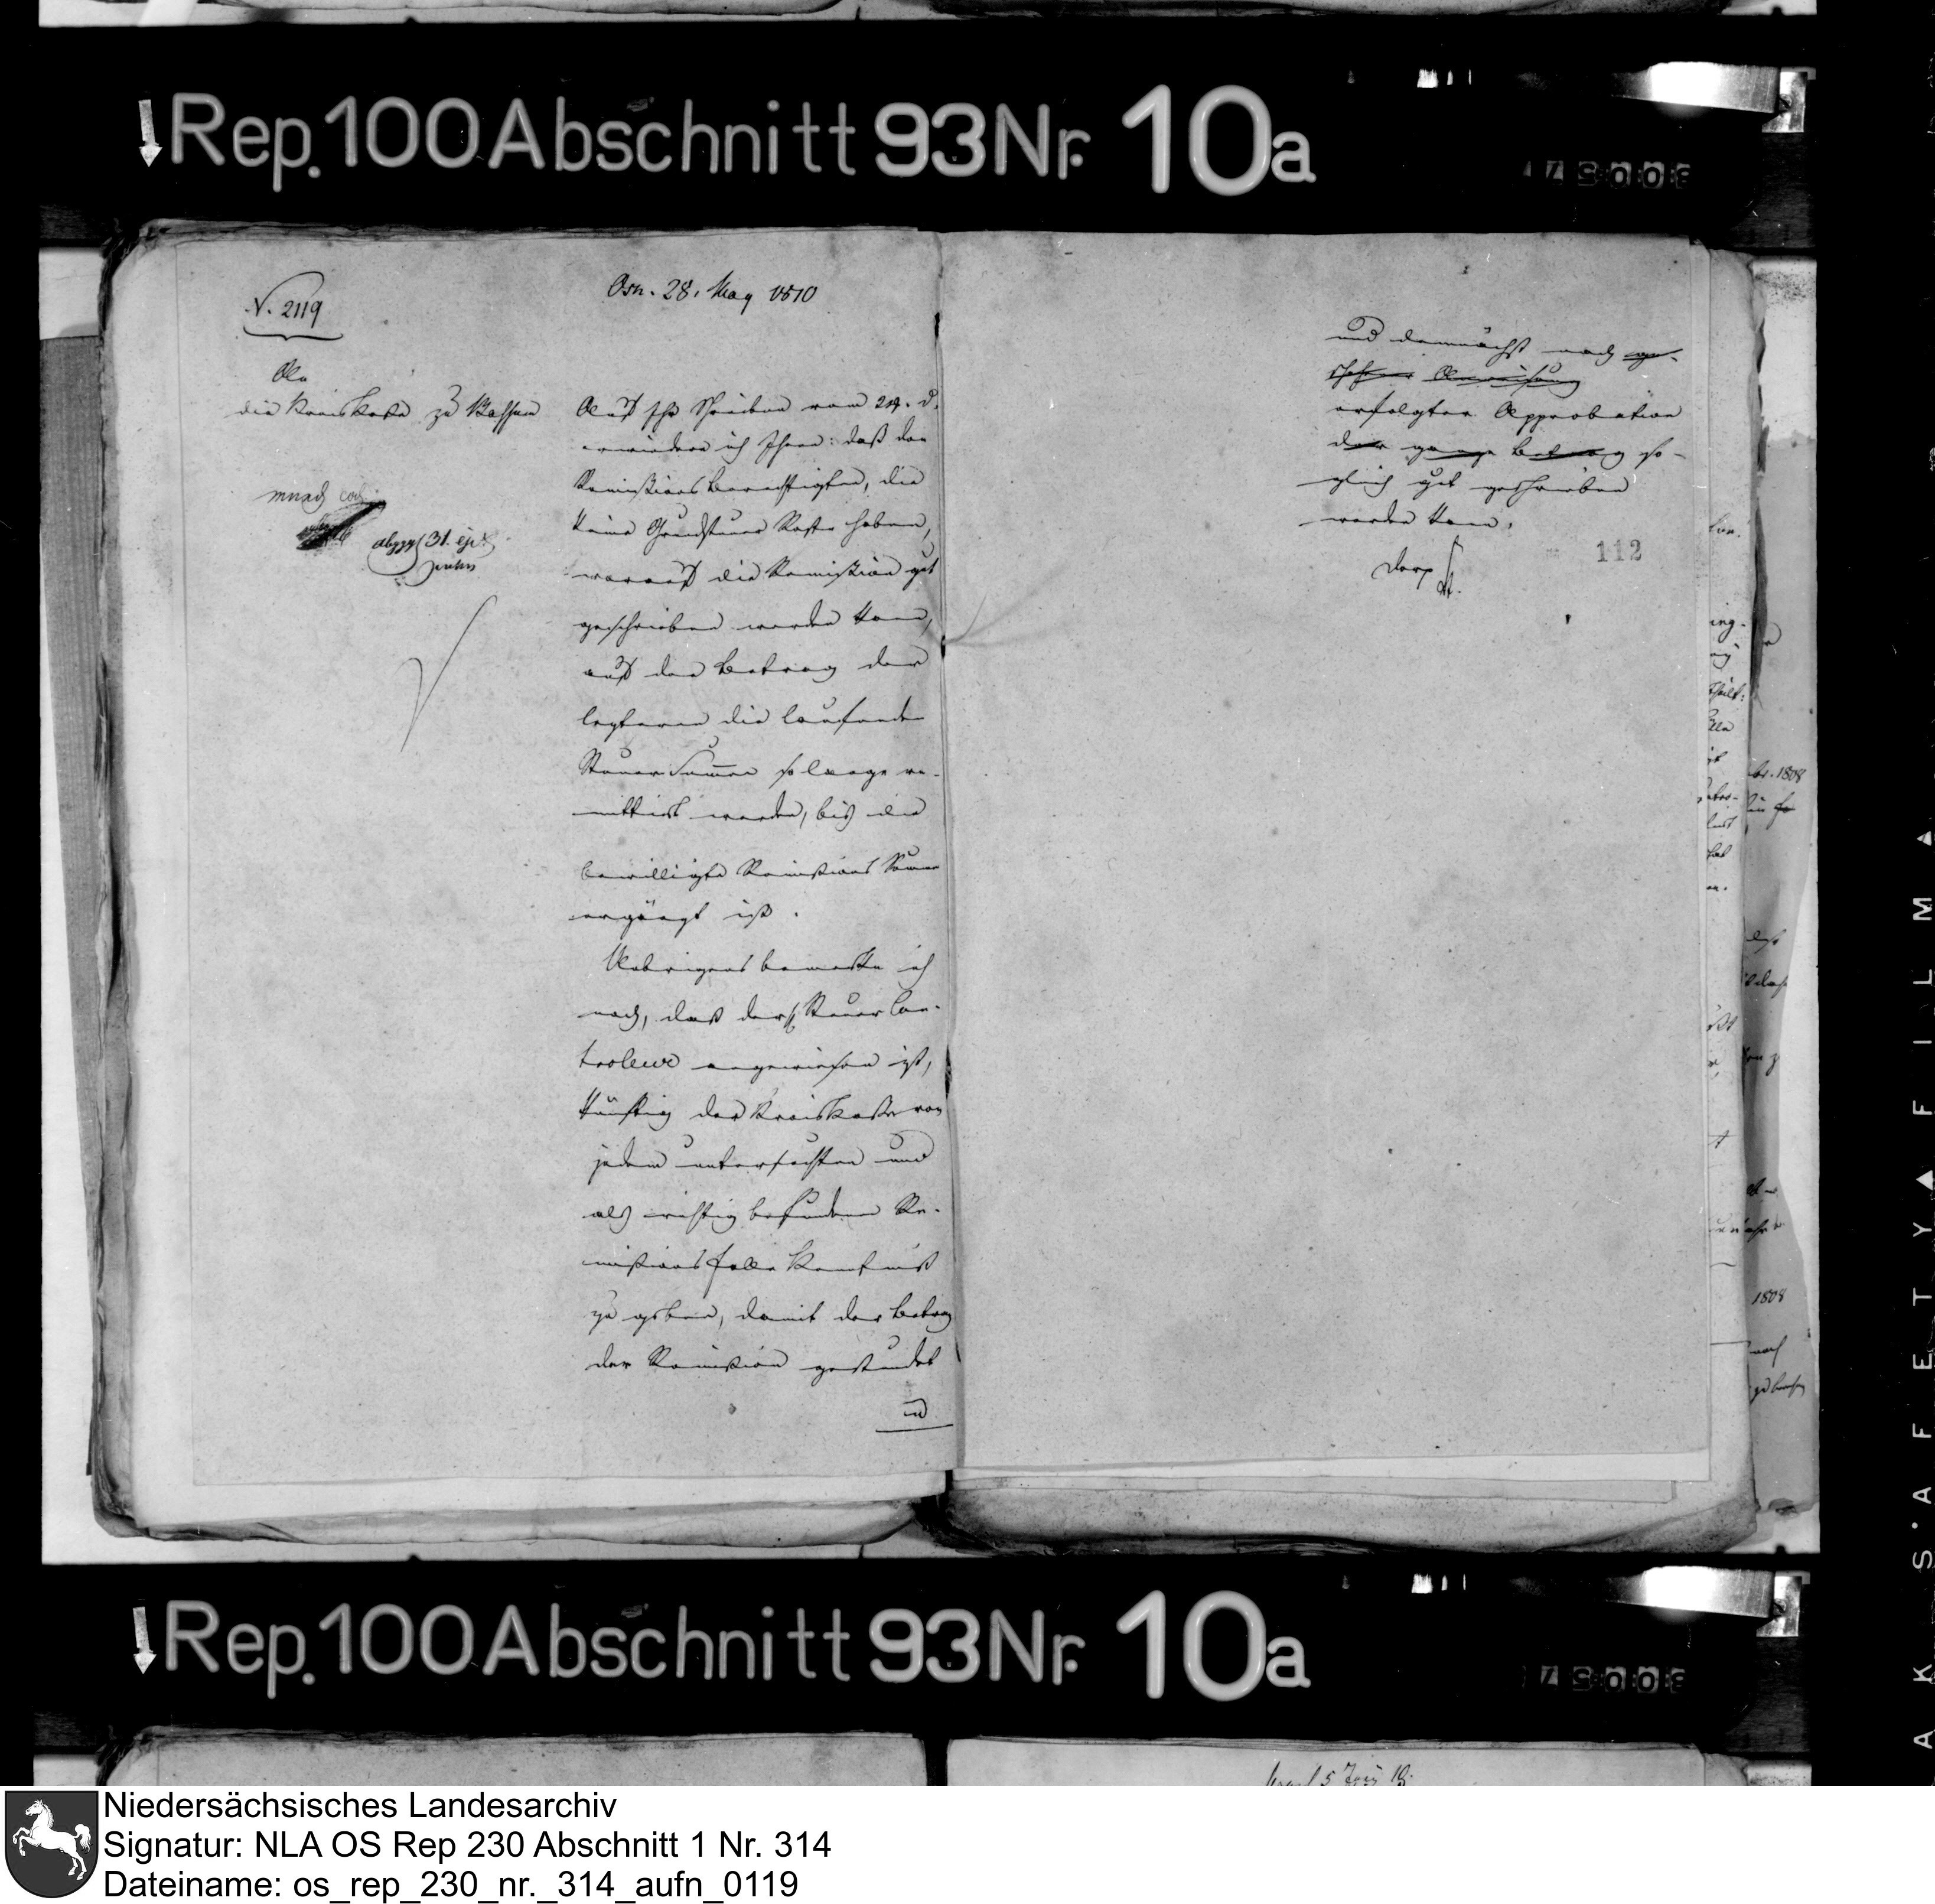 Rep. 100 Abschnitt 93 Nr. 10a
N. 2119
Osn. 28. May 1810
An
die Kreiskasse zu Bassum
mund. eod.
abggl 31. ej.
Auf Ihr Schreiben vom 24. d.
erwiedere ich Ihnen: daß den
Remissions Berechtigten, die
keine Grundsteuer Reste haben,
worauf die Remission gut
geschrieben werden kann,
auf den Betrag der
letztern die laufende
Steuer Summe so lange re-
mittirt werde, bis die
bewilligte Remissions Summe
ergänzt ist.
Uebrigens bemerke ich
noch, daß der Steuer Con-
troleur angewiesen ist,
künftig der Kreiskasse von
jedem untersuchten und
als richtig befundenen Re-
missions falle Kenntniß
zu geben, damit der Betrag
der Remission gestundet
und
und demnächst nach ge-
schehener Anweisung
erfolgter Approbation
der ganze Betrag so-
gleich gut geschrieben
werden kann.
112
Rep. 100 Abschnitt 93 Nr. 10a
AK S.A F E T Y ▲ F I L M ▲
Niedersächsisches Landesarchiv
Signatur: NLA OS Rep 230 Abschnitt 1 Nr. 314
Dateiname: os_rep_230_nr._314_aufn_0119